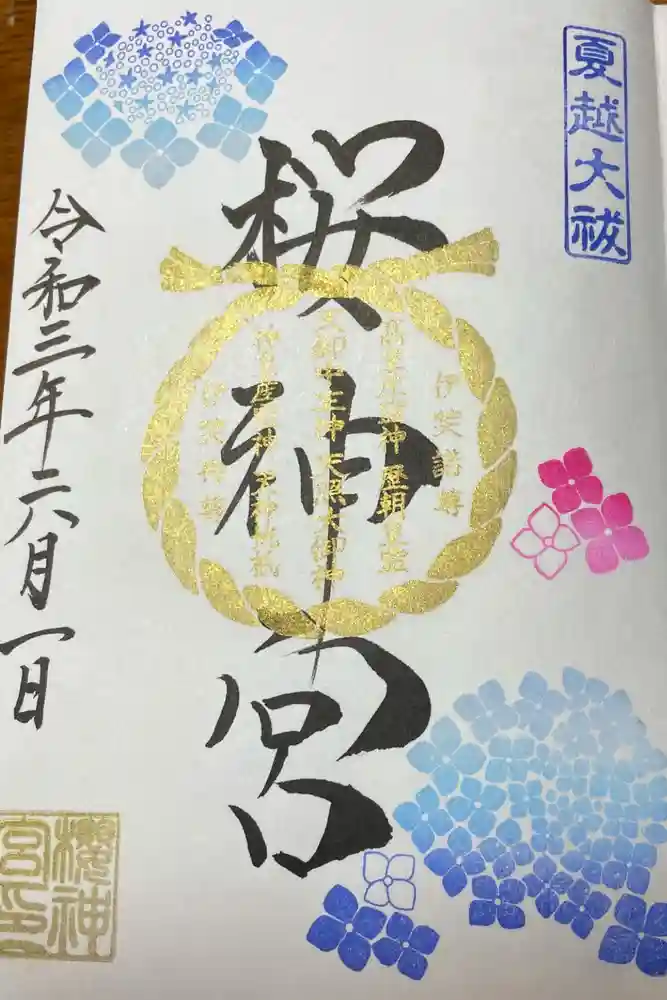 夏越大祓
桜神宮
伊弉諾尊
高皇産霊神 歴朝皇霊
天御中主神 天照大御神
神皇産霊神 天神地祇
伊弉冉尊
令和三年六月一日
櫻神
宮印